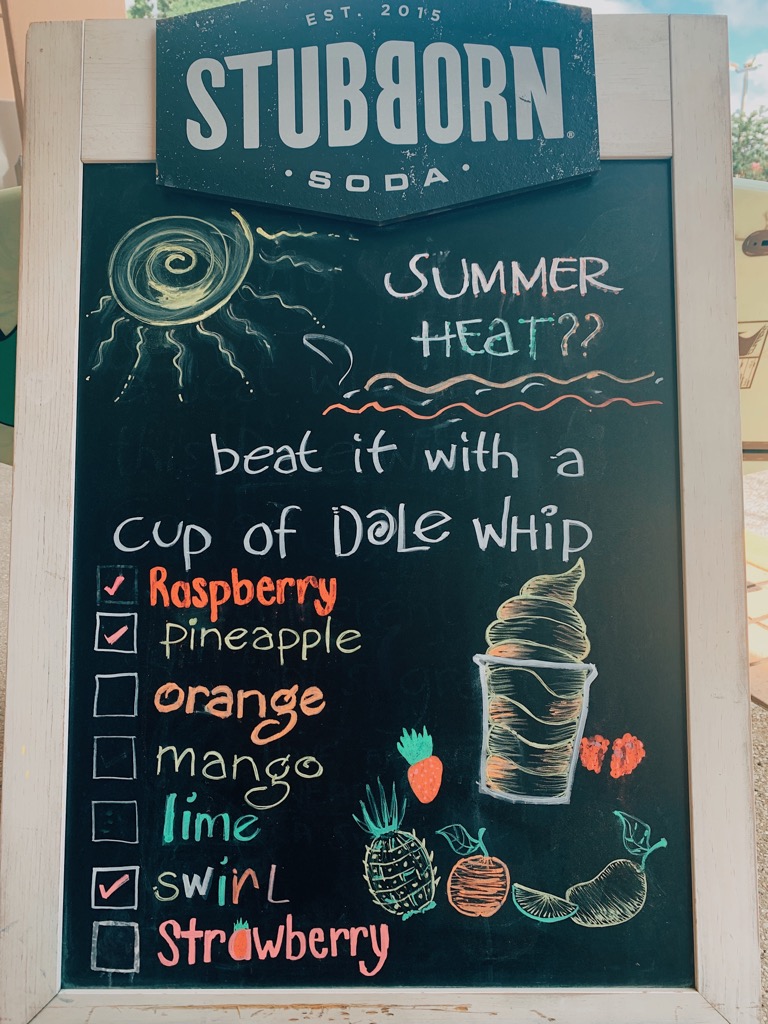 EST. 2015
STUBBORN®
• SODA •
SUMMER
HEAT??
beat it with a
cup of DOLE WHIP
Raspberry
pineapple
orange
mango
lime
swirl
Strawberry